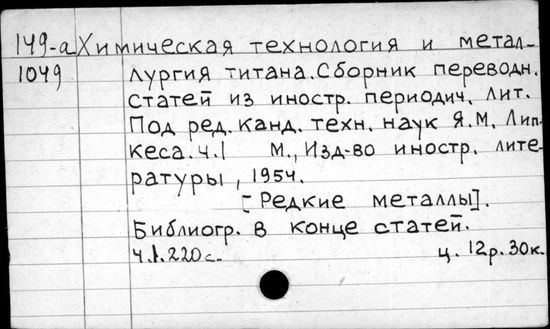 149-а Химическая технология и метал-
1049 лургия титана. Сборник переводн.
статей из иностр. периодич. лит.
Под ред. канд. техн. наук Я.М. Лип-
кеса. ч.1 М., Изд-во иностр. лите-
ратуры, 1954.
[Редкие металлы].
Библиогр. в конце статей.
ч.1. 220 с. ц. 12р. 30к.